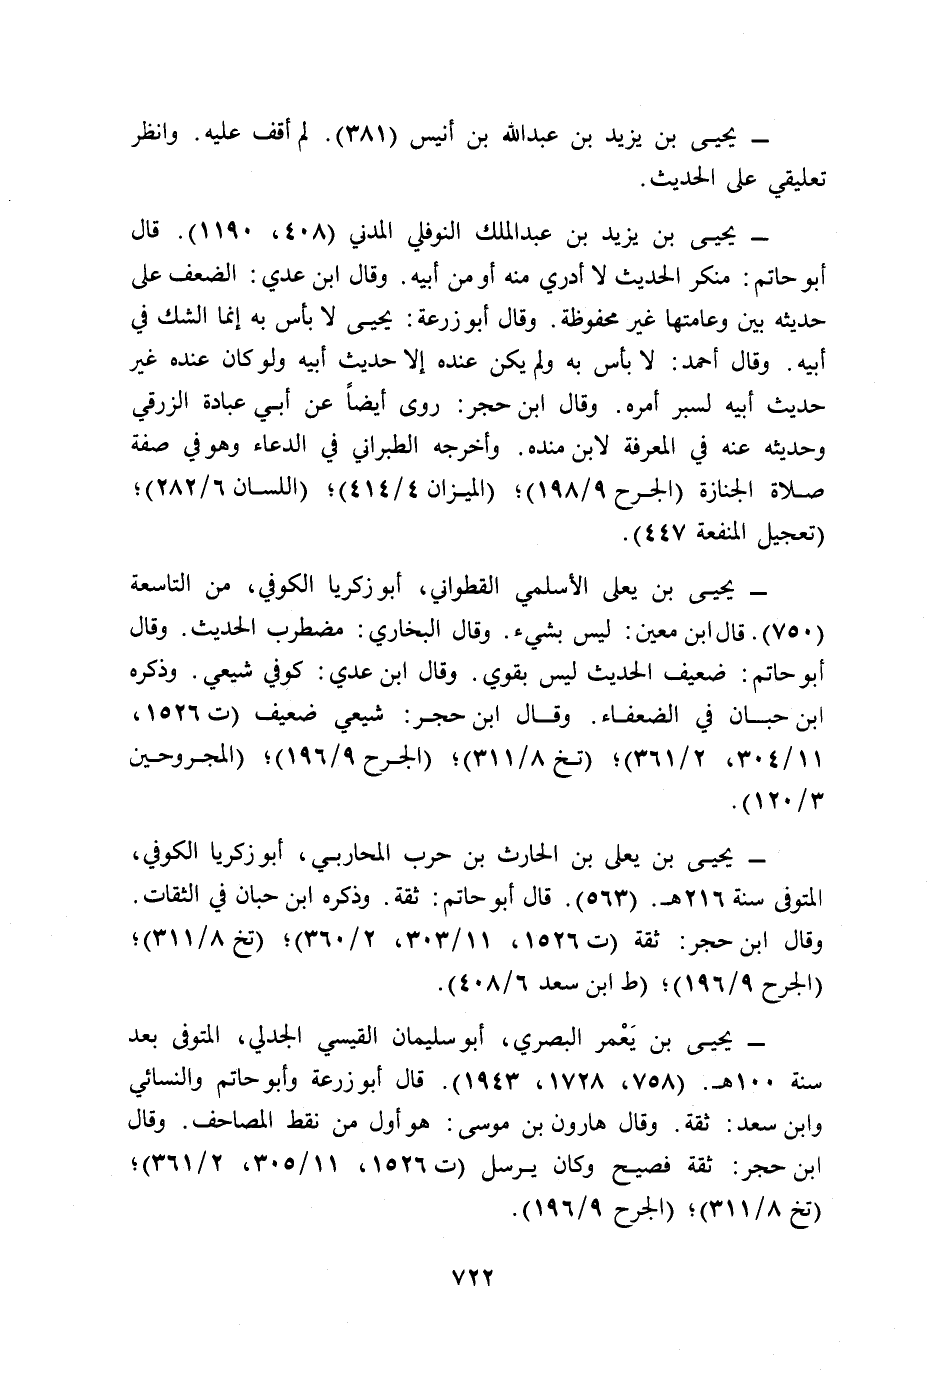 ــ يحيـى بن يزيد بن عبدالله بن أنيس (٣٨١). لم أقف عليه. وانظر
تعليقي على الحديث.
ــ يحيـى بن يزيد بن عبدالملك النوفلي المدني (٤٠٨، ١١٩٠). قال
أبو حاتم: منكر الحديث لا أدري منه أو من أبيه. وقال ابن عدي: الضعف على
حديثه بين وعامتها غير محفوظة. وقال أبو زرعة: يحيـى لا بأس به إنما الشك في
أبيه. وقال أحمد: لا بأس به ولم يكن عنده إلا حديث أبيه ولو كان عنده غير
حديث أبيه لسبر أمره. وقال ابن حجر: روى أيضاً عن أبـي عبادة الزرقي
وحديثه عنه في المعرفة لابن منده. وأخرجه الطبراني في الدعاء وهو في صفة
صـلاة الجنازة (الجـرح ١٩٨/٩)؛ (الميـزان ٤١٤/٤)؛ (اللسـان ٢٨٢/٦)؛
(تعجيل المنفعة ٤٤٧).
ــ يحيـى بن يعلى الأسلمي القطواني، أبو زكريا الكوفي، من التاسعة
(٧٥٠). قال ابن معين: ليس بشيء. وقال البخاري: مضطرب الحديث. وقال
أبو حاتم: ضعيف الحديث ليس بقوي. وقال ابن عدي: كوفي شيعي. وذكره
ابن حبـــان في الضعفـاء. وقــال ابن حجـر: شيعي ضعيف (ت ١٥٢٦،
٣٠٤/١١، ٣٦١/٢)؛ (تـخ ٣١١/٨)؛ (الجـرح ١٩٦/٩)؛ (المجـروحـين
١٢٠/٣).
ــ يحيـى بن يعلى بن الحارث بن حرب المحاربـي، أبو زكريا الكوفي،
المتوفى سنة ٢١٦هـ. (٥٦٣). قال أبو حاتم: ثقة. وذكره ابن حبان في الثقات.
وقال ابن حجر: ثقة (ت ١٥٢٦، ٣٠٣/١١، ٣٦٠/٢)؛ (تخ ٣١١/٨)؛
(الجرح ١٩٦/٩)؛ (ط ابن سعد ٤٠٨/٦).
ــ يحيـى بن يَعْمر البصري، أبو سليمان القيسي الجدلي، المتوفى بعد
سنة ١٠٠هـ. (٧٥٨، ١٧٢٨، ١٩٤٣). قال أبو زرعة وأبو حاتم والنسائي
وابن سعد: ثقة. وقال هارون بن موسى: هو أول من نقط المصاحف. وقال
ابن حجر: ثقة فصيح وكان يـرسل (ت ١٥٢٦، ٣٠٥/١١، ٣٦١/٢)؛
(تخ ٣١١/٨)؛ (الجرح ١٩٦/٩).
٧٢٢